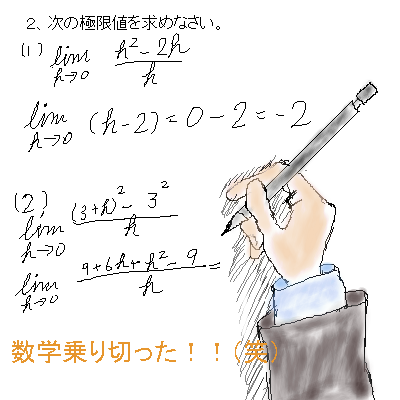 2、次の極限値を求めなさい。
(1) lim h→0 (h²-2h)/h
lim h→0 (h-2) = 0-2 = -2
(2)
lim h→0 ((3+h)²-3²)/h
lim h→0 (9+6h+h²-9)/h =
数学乗り切った！！(笑)